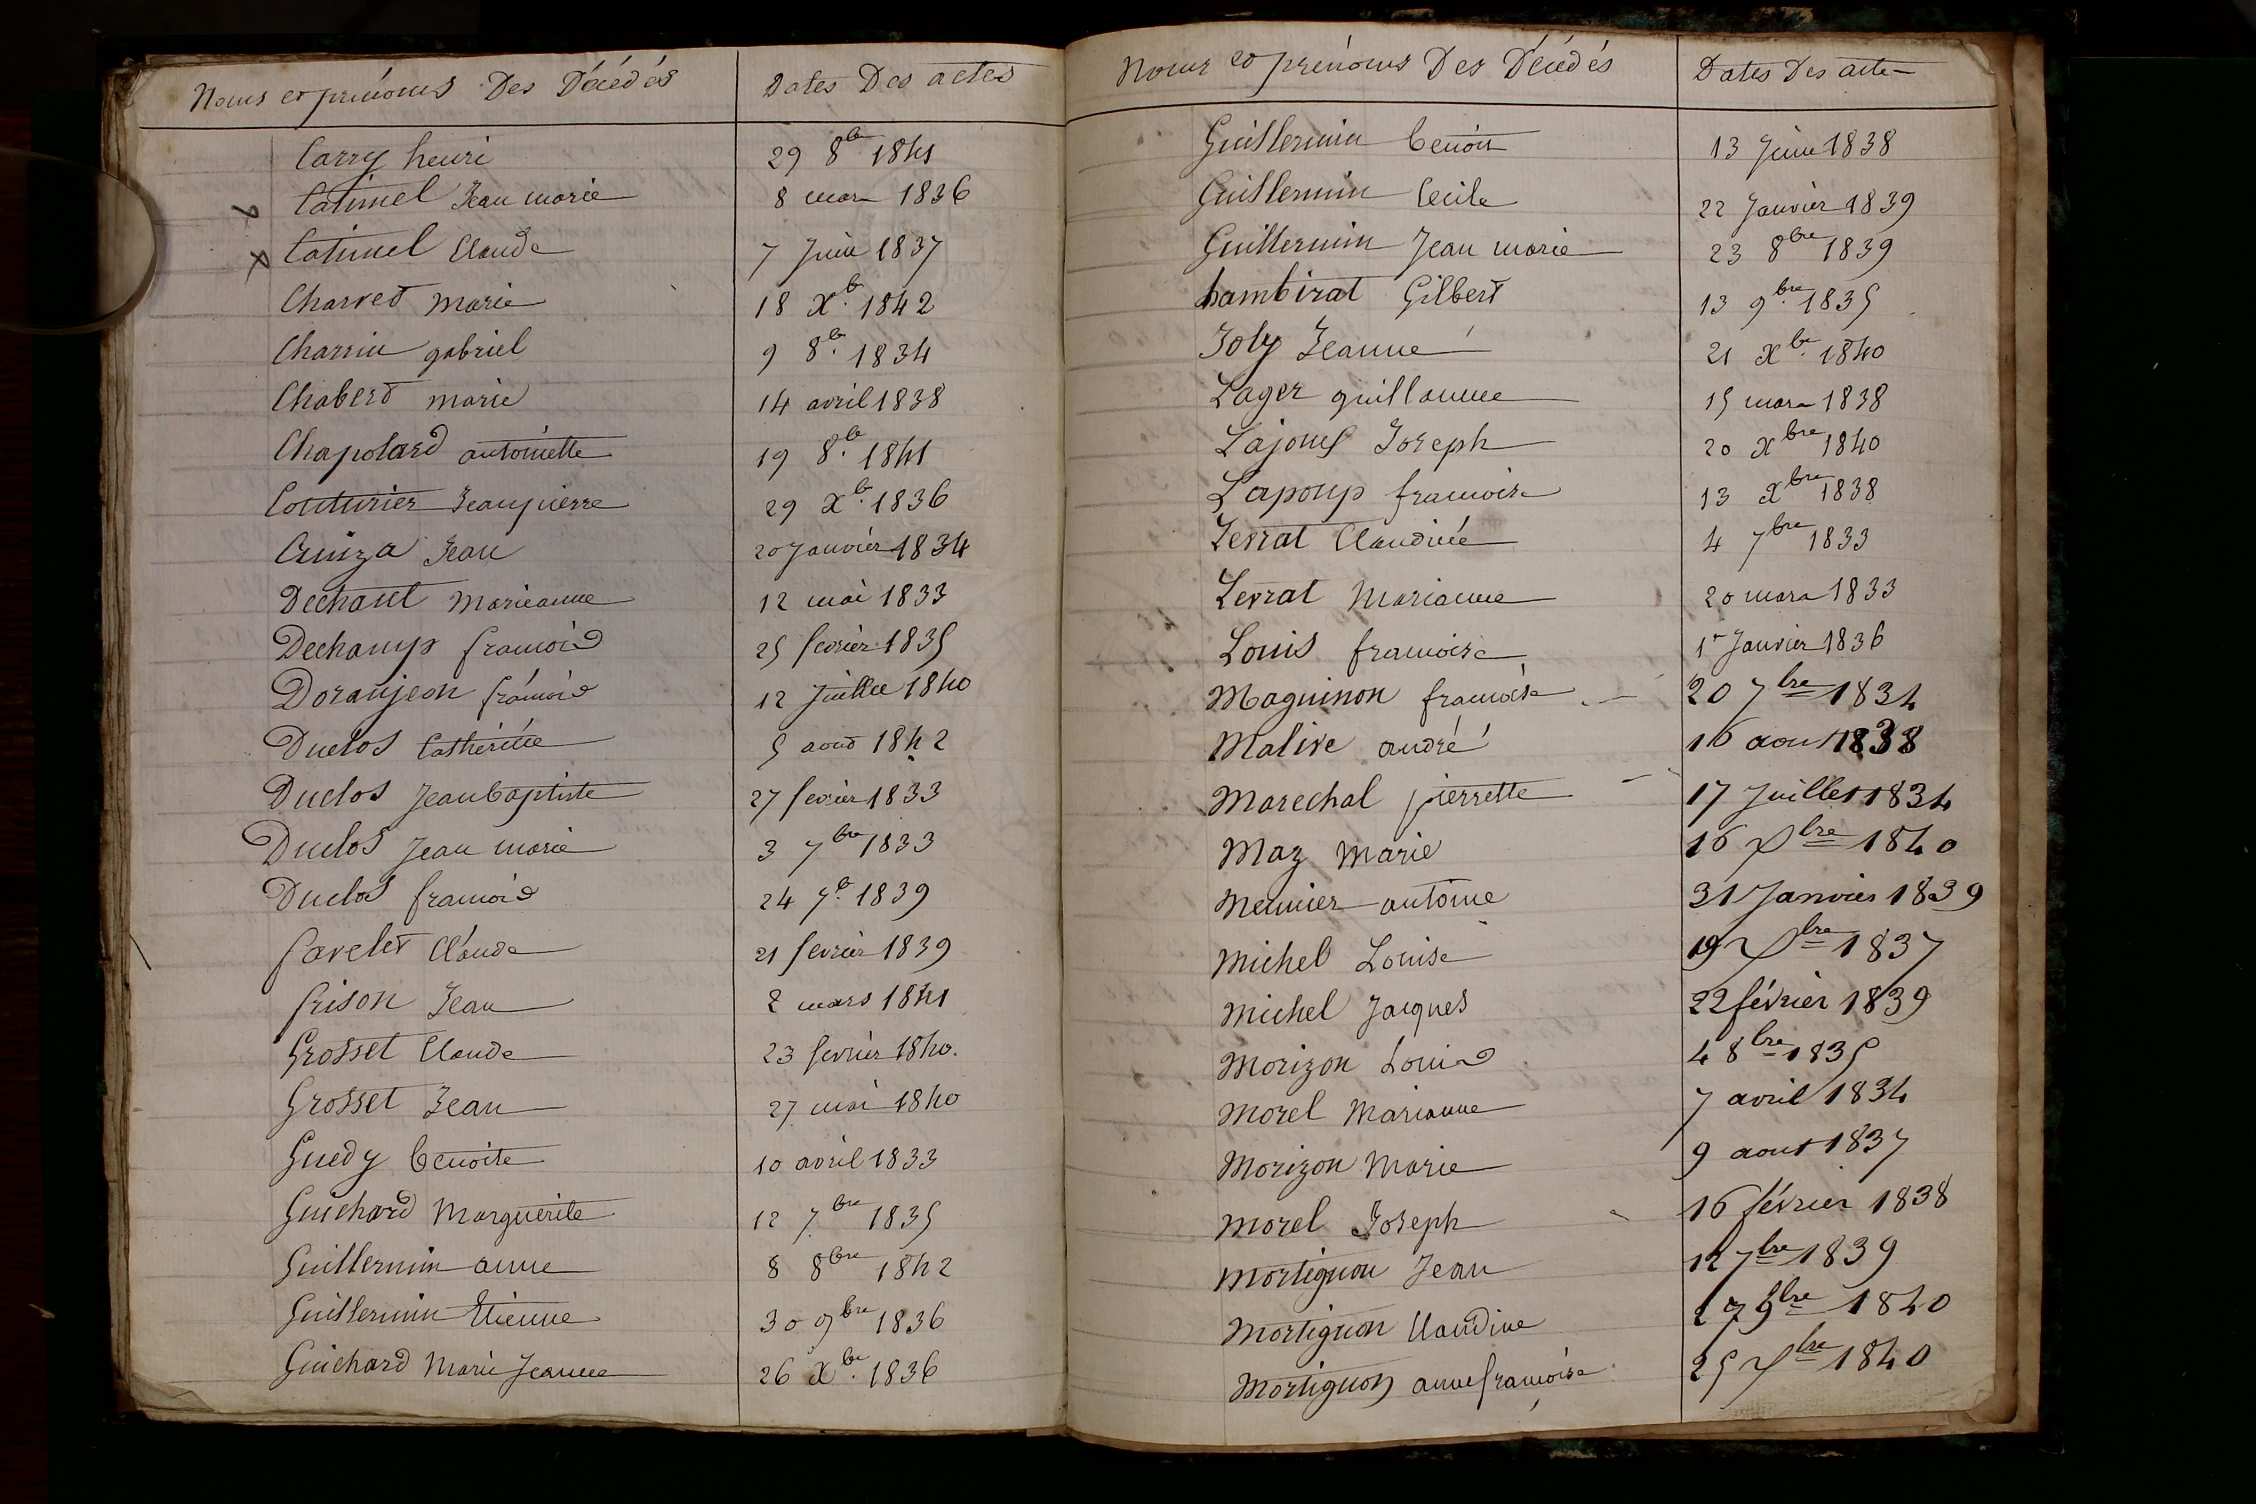 Noms et prénoms Des Décédés Dates Des actes
Carry henri 29 8b 1841
Catimel Jean marie 8 mars 1836
Catimel Claude 7 Juin 1837
Charvet marie 18 Xb. 1842
Charrin gabriel 9 8b. 1834
Chabert marie 14 avril 1838
Chapolard antoinette 19 8b. 1841
Couturier Jeanpierre 29 Xb. 1836
Cruiza Jean 20 Janvier 1834
Dechaut Marieanne 12 mai 1833
Dechamp francois 25 fevrier 1835
Doranjeon françois 12 Juillet 1840
Duclos Catherine 5 aout 1842
Duclos Jeanbaptiste 27 fevrier 1833
Duclos Jean marie 3 7bre 1833
Duclos francois 24 7b. 1839
favelet Claude 21 fevrier 1839
frison Jean 2 mars 1841
Grosset Claude 23 fevrier 1840.
Grosset Jean 27 mai 1840
Guedy benoite 10 avril 1833
Guichard Marguerite 12 7bre 1835
Guillermin anne 8 8bre 1842
Guillermin Etienne 30 9bre 1836
Guichard Marie Jeanne 26 Xbr. 1836
Noms et prénoms Des Décédés Dates Des acte
Guillermin benoit 13 Juin 1838
Guillermin Cecile 22 Janvier 1839
Guillermin Jean marie 23 8bre 1839
hambirat Gilbert 13 9bre 1835
Joly Jeanne 21 Xbr. 1840
Lager guillaume 15 mars 1838
Lajous Joseph 20 Xbre 1840
Lapoup francoise 13 Xbre 1838
Levrat Claudine 4 7bre 1833
Levrat Marianne 20 mars 1833
Louis francoise 1r Janvier 1836
Maguinon francoise 20 7bre 1834
Malive andré 16 aout 1838
Marechal pierrette 17 Juillet 1834
Maz Marie 16 Xbre 1840
Meunier antoine 31 Janvier 1839
Michel Louise 19 Xbre 1837
Michel Jacques 22 février 1839
Morizon Louis 4 8bre 1835
Morel Marianne 7 avril 1834
Morizon Marie 9 aout 1837
Morel Joseph 16 février 1838
Mortignon Jean 12 7bre 1839
Mortignon Claudine 27 9bre 1840
Mortignon anne françoise 25 Xbre 1840